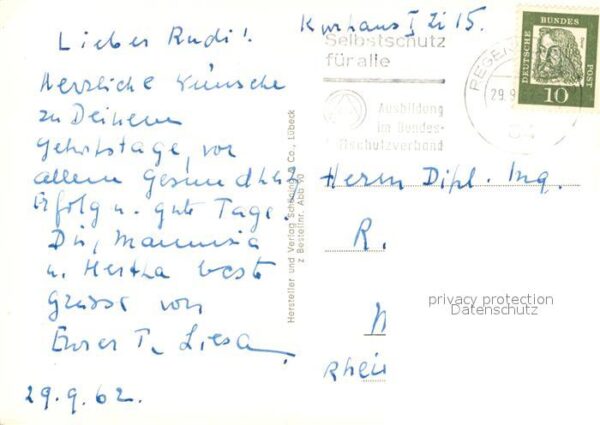 Lieber Rudi!
Herzliche Wünsche
zu Deinem
Geburtstage, vor
allem Gesundheit,
Erfolg u. gute Tage.
Dir, Mammina
u. Hertha beste
Grüsse von
Eurer T. Liesa.
29.9.62.
Hersteller und Verlag Schöning & Co., Lübeck
z Bestellnr. Abb 90
Kurhaus I Zi 15.
Selbstschutz
für alle
Ausbildung
im Bundes-
luftschutzverband
REGEN
29.9.
DEUTSCHE BUNDES POST
10
Herrn Dipl. Ing.
R.
privacy protection
Datenschutz
Rhein